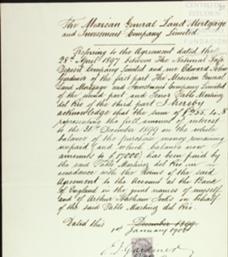 The Mexican General Land Mortgage
and Investment Company Limited
Referring to the Agreement dated the
28th April 1897 between The National Safe
Deposit Company Limited and me Edward
Gardner of the first part The Mexican General
Land Mortgage and Investment Company Limited
of the second part and Pablo Martinez
del Rio of the third part I hereby
acknowledge that the sum of
representing the full amount of interest
to the 31st December 1899 on the whole
balance of the purchase money remaining
unpaid (and which balance now
amounts to £17000) has been paid by
the said Pablo Martinez del Rio in
accordance with the terms of the said
Agreement to the Account at the Bank
of England in the joint names of myself
and of Arthur on behalf
of the said Pablo Martinez del Rio
Dated this December 1899
1st January 1900
E. J. Gardner